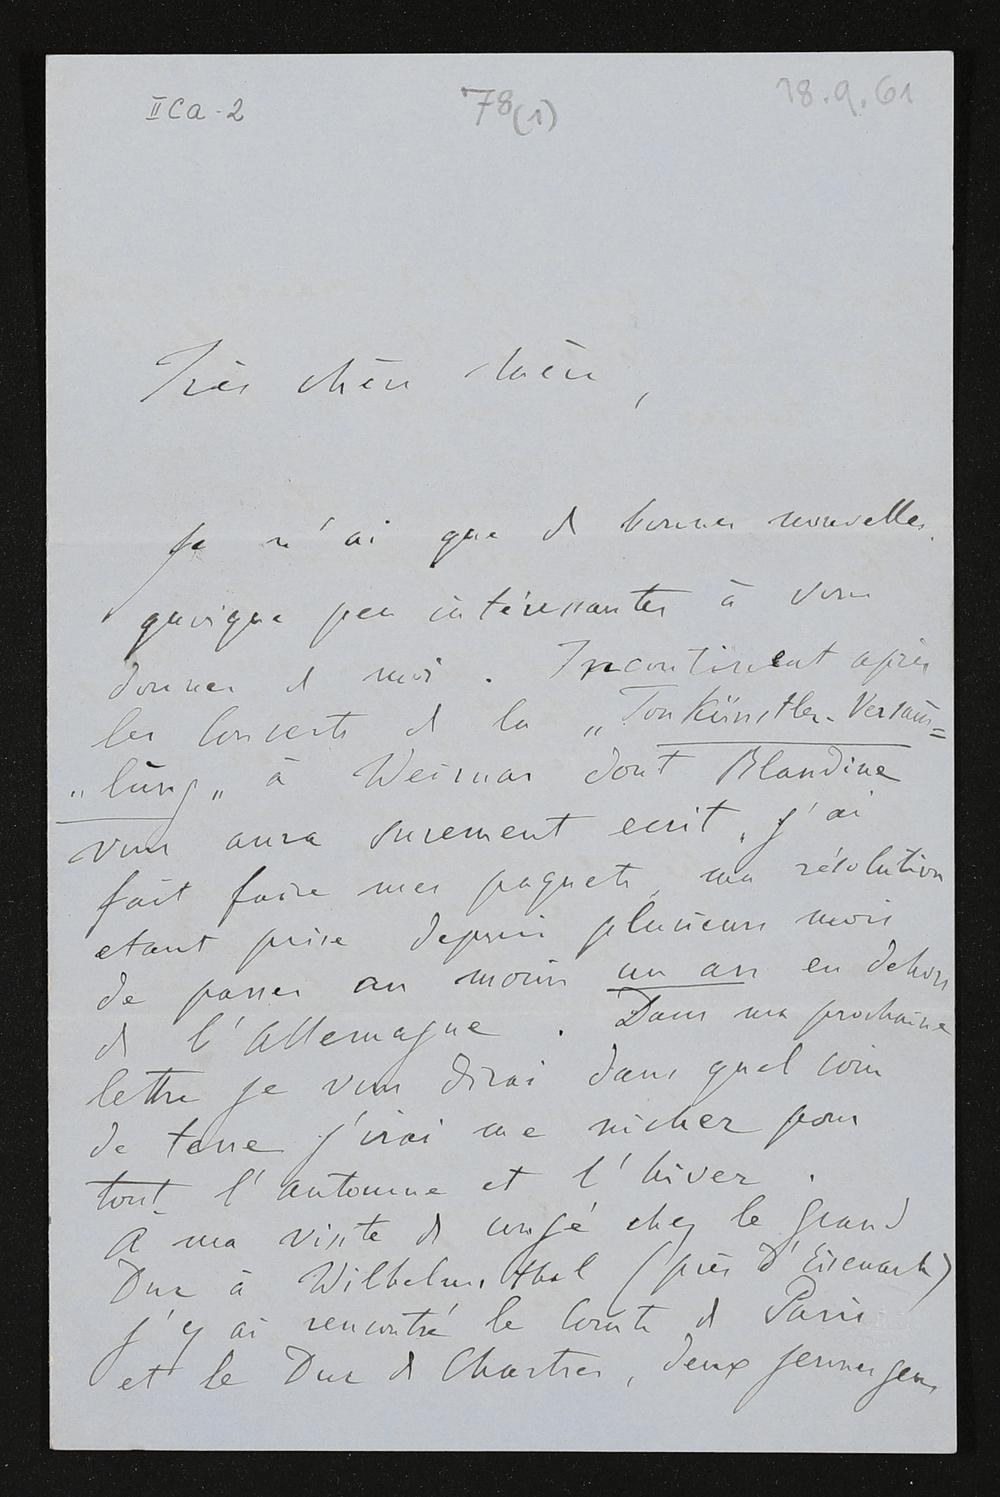 IICa-2
78(1)
18.9.61
Très chère Mère,
Je n'ai que de bonnes nouvelles,
quoique peu intéressantes à vous
donner de moi. Incontinent après
les Concerts de la „Tonkünstler-Versam=
„lūng„ à Weimar dont Blandine
vous aura surement ecrit, j'ai
fait faire mes paquets, ma résolution
etant prise depuis plusieurs mois
de passer au moins un an en dehors
de l'Allemagne. Dans ma prochaine
lettre je vous dirai dans quel coin
de terre j'irai me nicher pour
tout l'automne et l'hiver.
A ma visite de congé chez le Grand
Duc à Wilhelmsthal (près d'Eisenach)
j'y ai rencontré le Comte de Paris
et le Duc de Chartres, deux jeunes gens